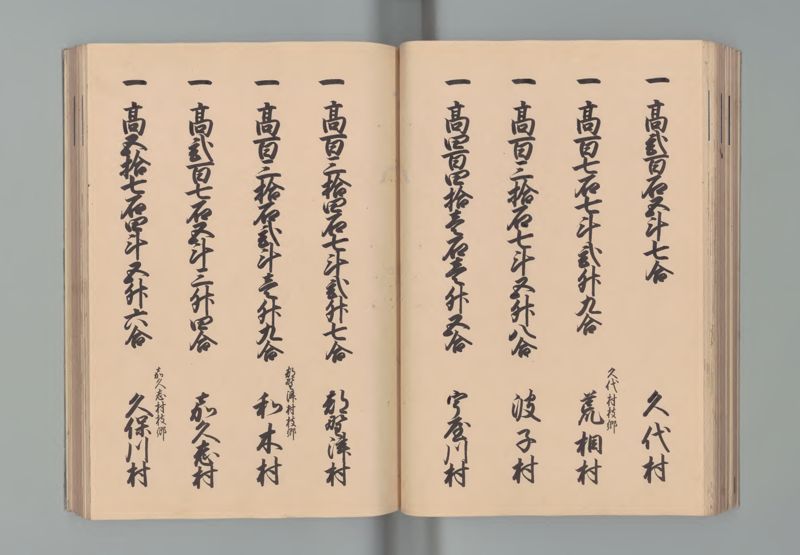 一 高弐百石五斗七合 久代村
一 高百七石七斗弐升九合
久代村枝郷
荒相村
一 高百三拾石七斗五升八合 波子村
一 高四百四拾壱石壱升五合 宇屋川村
一 高百三拾四石七斗弐升七合 都野津村
一 高百三拾石弐斗壱升九合
都野津村枝郷
和木村
一 高弐百七石五斗三升四合 嘉久志村
一 高五拾七石四斗五升六合
嘉久志村枝郷
久保川村